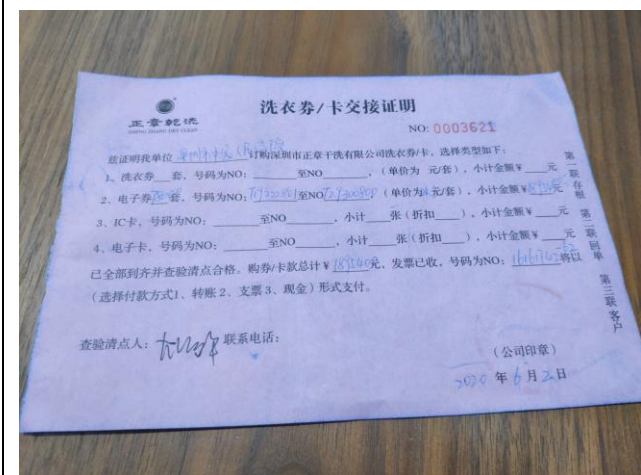 正章乾洗
ZHENG ZHANG DRY CLEAN
洗衣券/卡交接证明
NO: 0003621
兹证明我单位 订购深圳市正章干洗有限公司洗衣券/卡，选择类型如下：
1、洗衣券 套，号码为NO: 至NO ，（单价为 元/套），小计金额￥ 元
2、电子券 套，号码为NO: 至NO ，（单价为 元/套），小计金额￥ 元
3、IC卡，号码为NO: 至NO ，小计 张（折扣 ），小计金额￥ 元
4、电子卡，号码为NO: 至NO ，小计 张（折扣 ），小计金额￥ 元
已全部到齐并查验清点合格。购券/卡款总计￥ 元，发票已收，号码为NO: 将以
（选择付款方式1、转账2、支票3、现金）形式支付。
查验清点人： 联系电话：
（公司印章）
2020 年 6 月 2 日
第一联存根 第二联回单 第三联客户